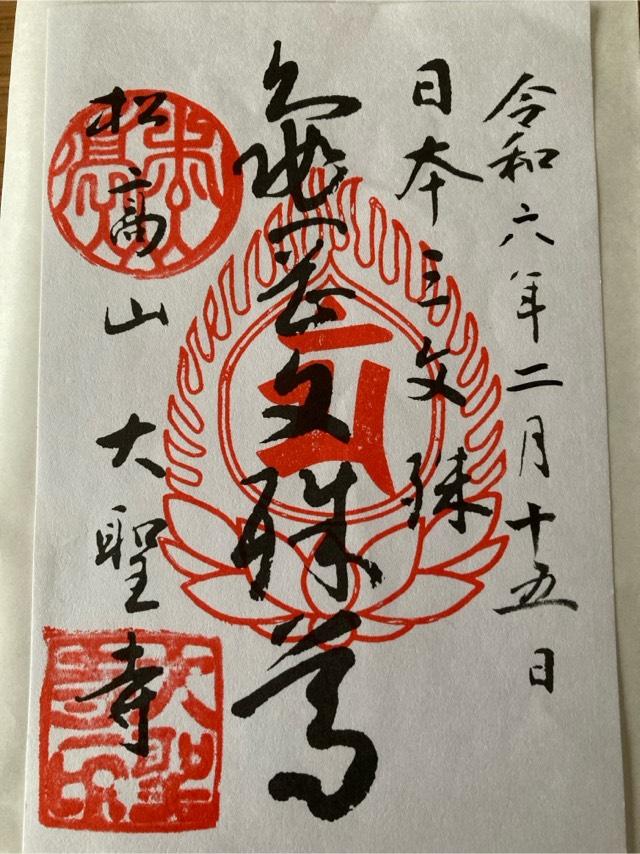 令和六年二月十五日
日本三文殊
亀岡文殊尊
松高山
大聖寺